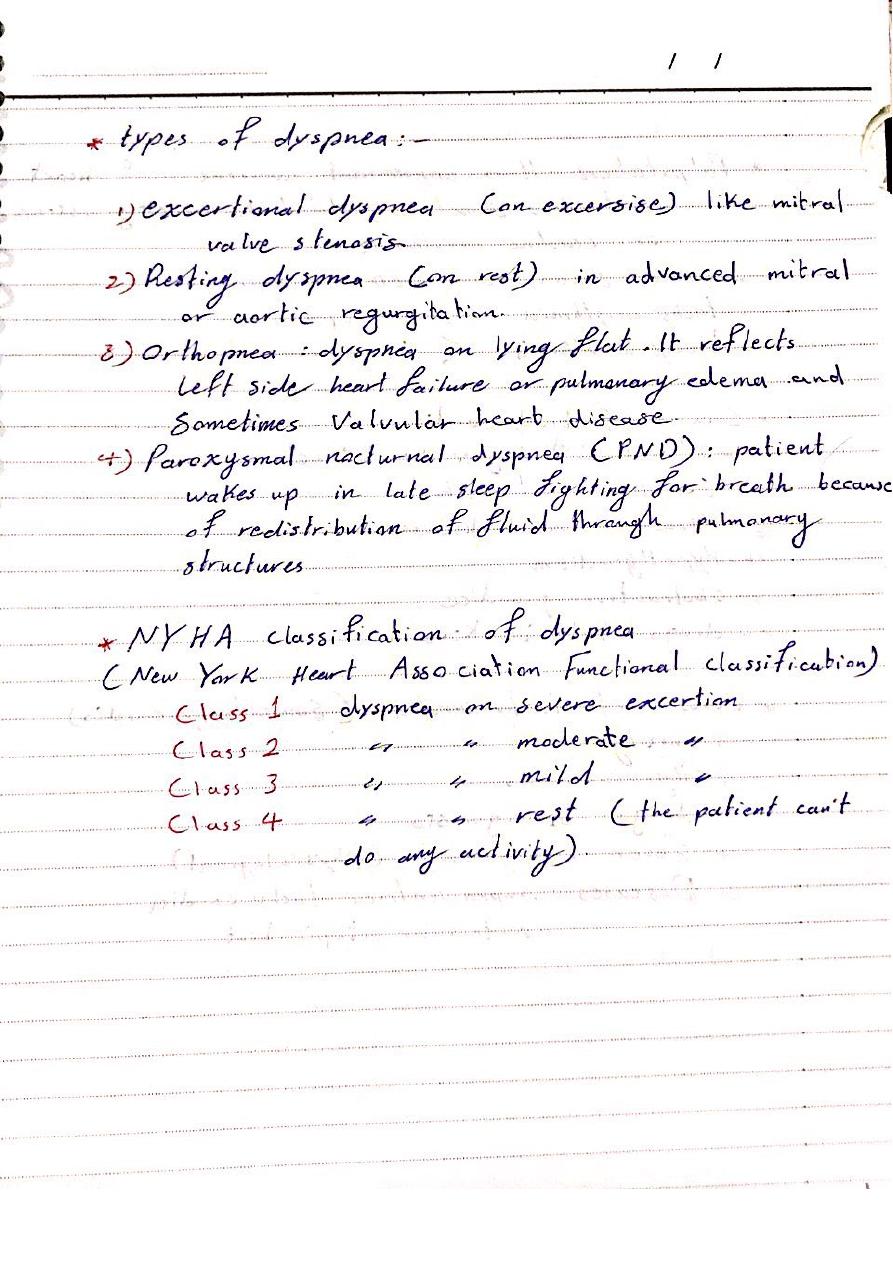 / /
* types of dyspnea :-
1) excertional dyspnea (on excersise) like mitral
valve stenosis
2) Resting dyspnea (on rest) in advanced mitral
or aortic regurgitation.
3) Orthopnea : dyspnea on lying flat. It reflects
left side heart failure or pulmonary edema and
Sometimes Valvular heart disease.
4) Paroxysmal nocturnal dyspnea (PND) : patient
wakes up in late sleep fighting for breath because
of redistribution of fluid through pulmonary
structures
* NYHA classification of dyspnea
(New York Heart Association Functional classification)
Class 1 dyspnea on severe excertion
Class 2 " " moderate "
Class 3 " " mild "
Class 4 " " rest (the patient can't
do any activity).